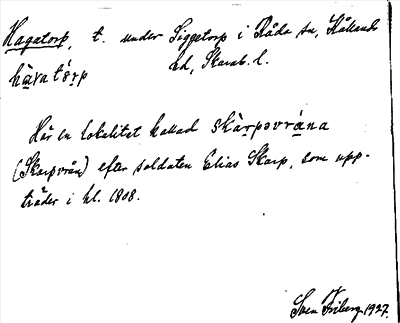 Hagatorp, t. under Siggetorp i Råda sn, Kållands
hd, Skarab. l.
hàvatórp
Här en lokalitet kallad skàrpəvrána
(Skarpvrån) efter soldaten Elias Skarp, som upp-
träder i hl. 1808.
Sven Friberg 1927.